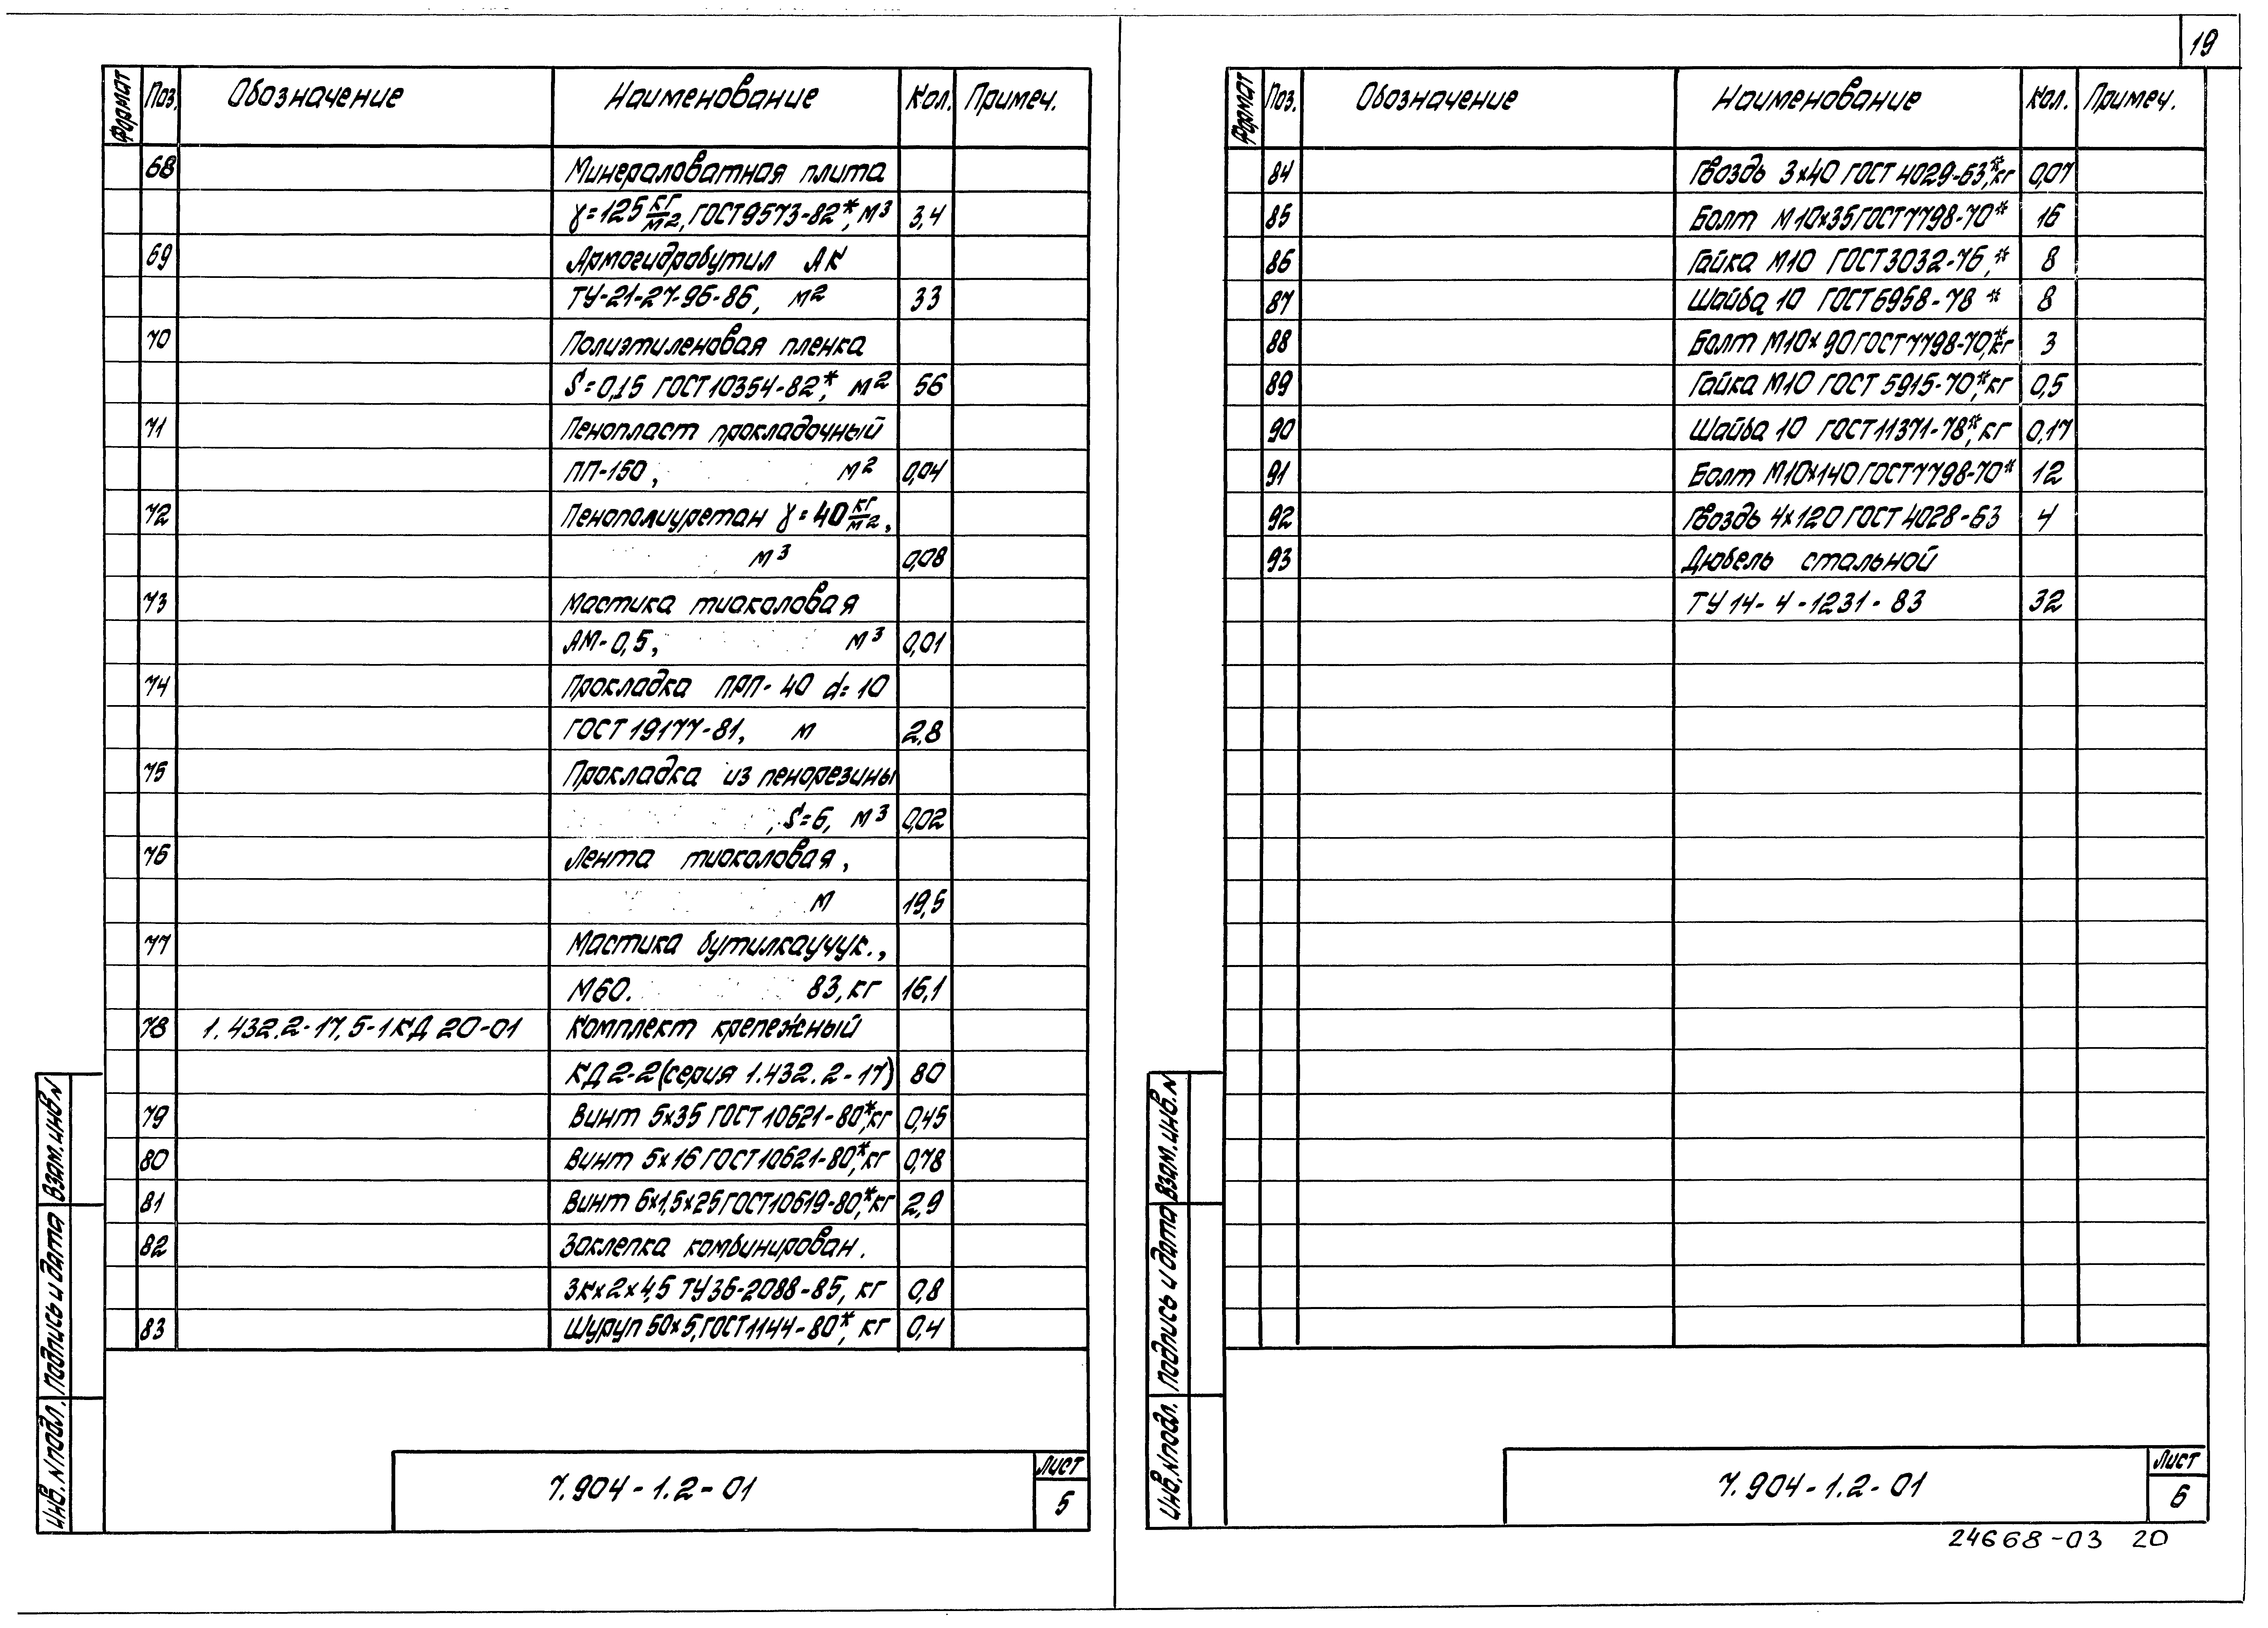 19
Формат Поз. Обозначение Наименование Кол. Примеч.
68 Минераловатная плита
γ=125 кг/м2, ГОСТ 9573-82*, м3 3,4
69 Армогидробутил АК
ТУ-21-27-96-86, м2 33
70 Полиэтиленовая пленка
S=0,15 ГОСТ 10354-82*, м2 56
71 Пенопласт прокладочный
ПП-150, м2 0,04
72 Пенополиуретан γ=40 кг/м2,
м3 0,08
73 Мастика тиоколовая
АМ-0,5, м3 0,01
74 Прокладка ПРП-40 d=10
ГОСТ 19177-81, м 2,8
75 Прокладка из пенорезины
, S=6, м3 0,02
76 Лента тиоколовая,
м 19,5
77 Мастика бутилкаучук.,
М60. 83, кг 16,1
78 1.432.2-17,5-1КД 20-01 Комплект крепежный
КД 2-2 (серия 1.432.2-17) 80
79 Винт 5х35 ГОСТ 10621-80*, кг 0,45
80 Винт 5х16 ГОСТ 10621-80*, кг 0,78
81 Винт 6х1,5х25 ГОСТ 10619-80*, кг 2,9
82 Заклепка комбинирован.
ЗКх2х4,5 ТУ 36-2088-85, кг 0,8
83 Шуруп 50х5, ГОСТ 1144-80*, кг 0,4
Взам. инв. N
Подпись и дата
Инв. N подл.
7.904-1.2-01
Лист
5
Формат Поз. Обозначение Наименование Кол. Примеч.
84 Гвоздь 3х40 ГОСТ 4029-63*, кг 0,07
85 Болт М10х35 ГОСТ 7798-70* 16
86 Гайка М10 ГОСТ 3032-76,* 8
87 Шайба 10 ГОСТ 6958-78* 8
88 Болт М10х90 ГОСТ 7798-70*, кг 3
89 Гайка М10 ГОСТ 5915-70*, кг 0,5
90 Шайба 10 ГОСТ 11371-78*, кг 0,17
91 Болт М10х140 ГОСТ 7798-70* 12
92 Гвоздь 4х120 ГОСТ 4028-63 4
93 Дюбель стальной
ТУ 14-4-1231-83 32
Взам. инв. N
Подпись и дата
Инв. N подл.
7.904-1.2-01
Лист
6
24668-03 20